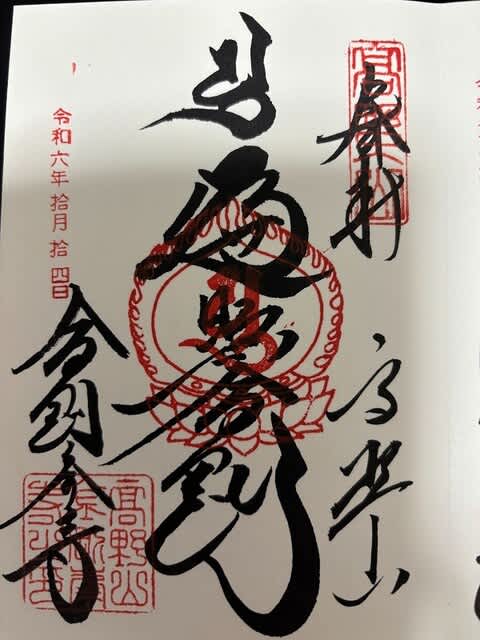 奉拝
高野山
高野山
遍照金剛
令和六年拾月拾四日
金剛峯寺
高野山